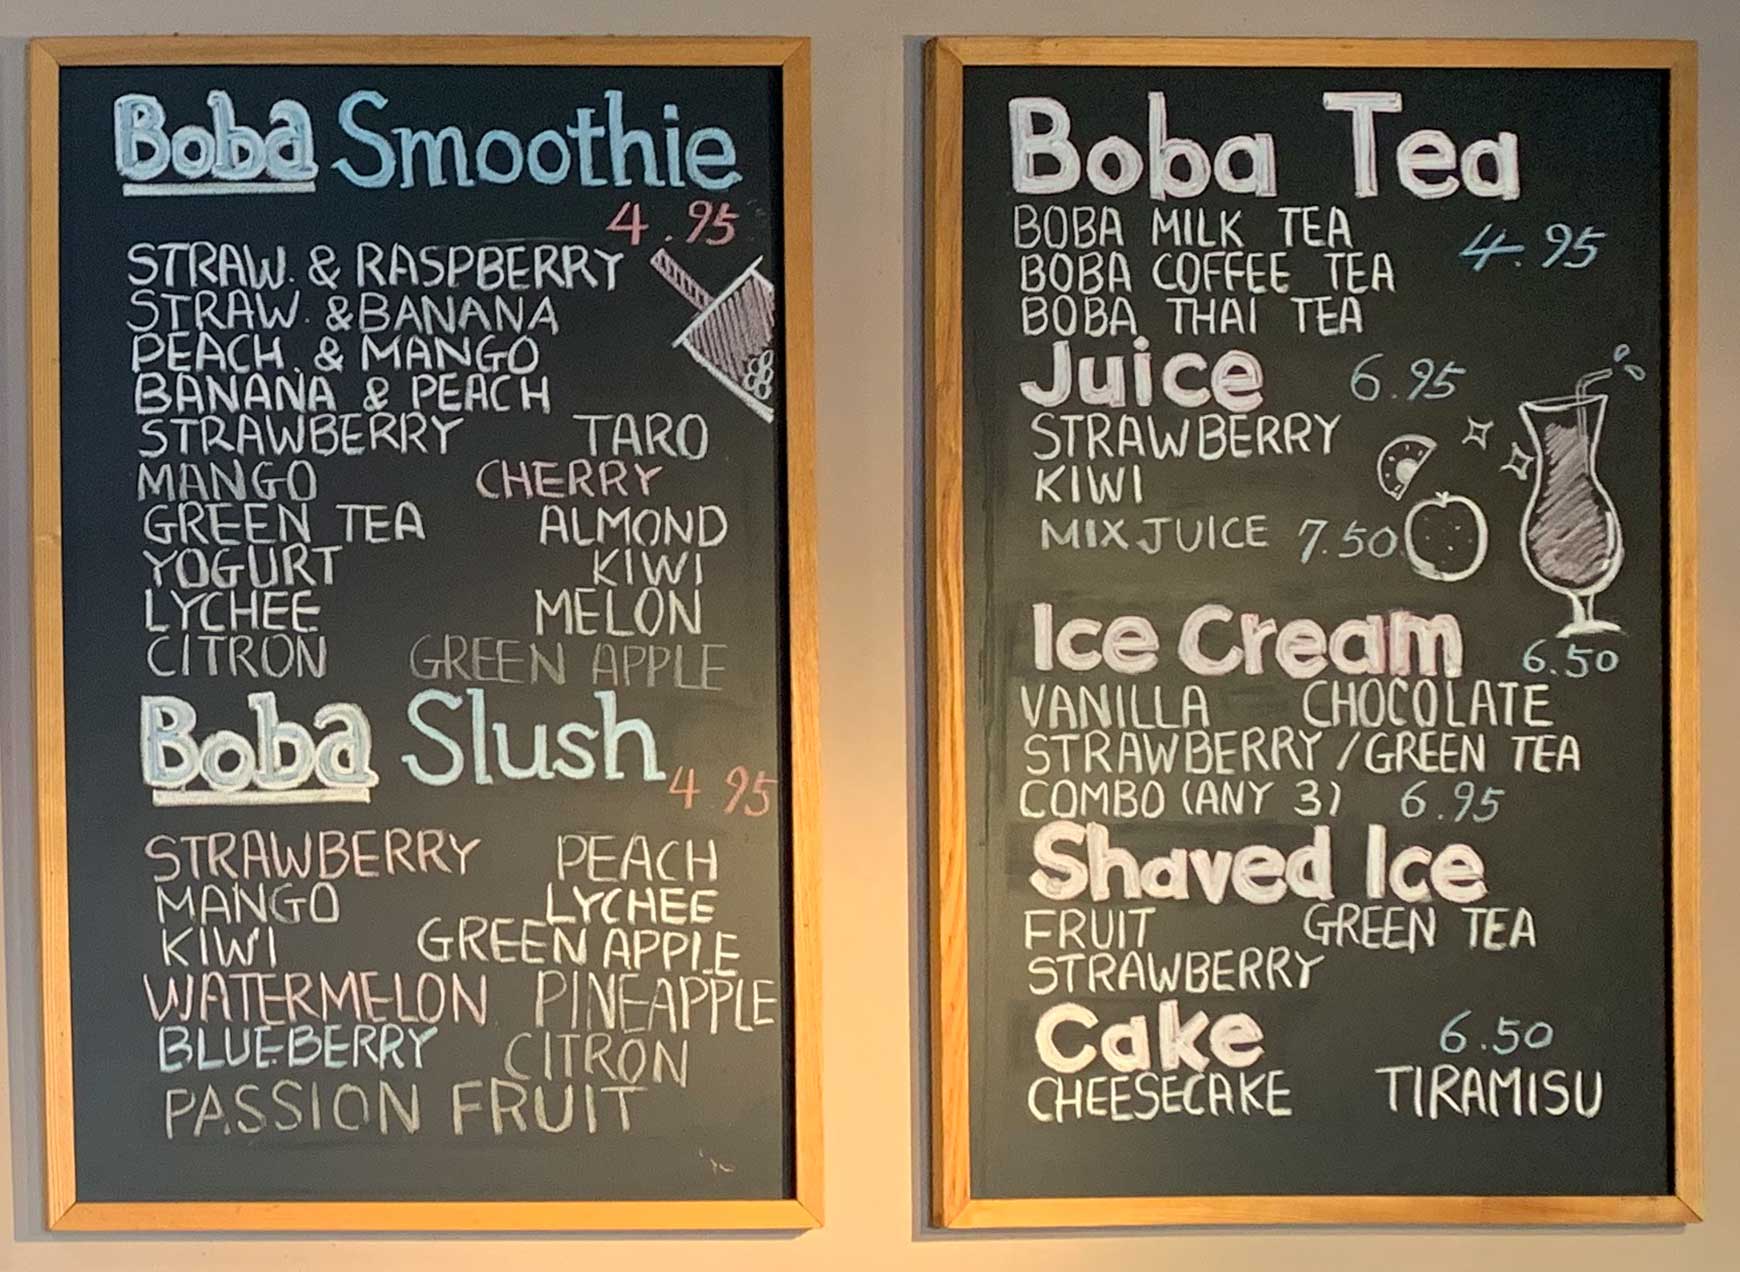 Boba Smoothie
4.95
STRAW. & RASPBERRY
STRAW. & BANANA
PEACH. & MANGO
BANANA & PEACH
STRAWBERRY TARO
MANGO CHERRY
GREEN TEA ALMOND
YOGURT KIWI
LYCHEE MELON
CITRON GREEN APPLE
Boba Slush
4 95
STRAWBERRY PEACH
MANGO LYCHEE
KIWI GREEN APPLE
WATERMELON PINEAPPLE
BLUEBERRY CITRON
PASSION FRUIT
Boba Tea
BOBA MILK TEA 4.95
BOBA COFFEE TEA
BOBA THAI TEA
Juice 6.95
STRAWBERRY
KIWI
MIX JUICE 7.50
Ice Cream 6.50
VANILLA CHOCOLATE
STRAWBERRY / GREEN TEA
COMBO (ANY 3) 6.95
Shaved Ice
FRUIT GREEN TEA
STRAWBERRY
Cake 6.50
CHEESECAKE TIRAMISU